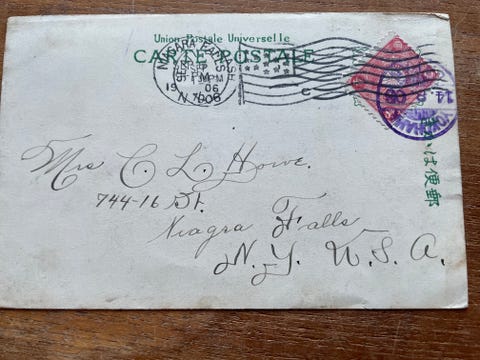 Union Postale Universelle
CARTE POSTALE
NIAGARA FALLS
1906
N.Y.
YOKOHAMA
14. 8. 06
郵便はかき
Mrs C. L. Howe.
744-16 St.
Niagra Falls
N. Y. U. S. A.